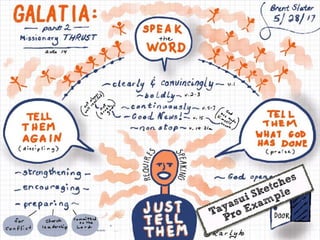 GALATIA:
part 2
Missionary THRUST
Acts 14
Brent Slater
5/28/17
SPEAK
the
WORD
~ clearly & convincingly ~ v.1
~ boldly ~ v.2-3
~ continuously ~
~ Good News! ~ v.15
~ non stop ~
TELL
THEM
AGAIN
(discipling)
~ strengthening ~
~ encouraging ~
~ preparing ~
for
conflict
church
leadership
committed
to the
Lord
REQUIRES
SPEAKING
JUST
TELL
THEM
TELL
THEM
WHAT GOD
HAS DONE
(praise)
~ God opened
DOOR
Tayasui Sketches
Pro Example